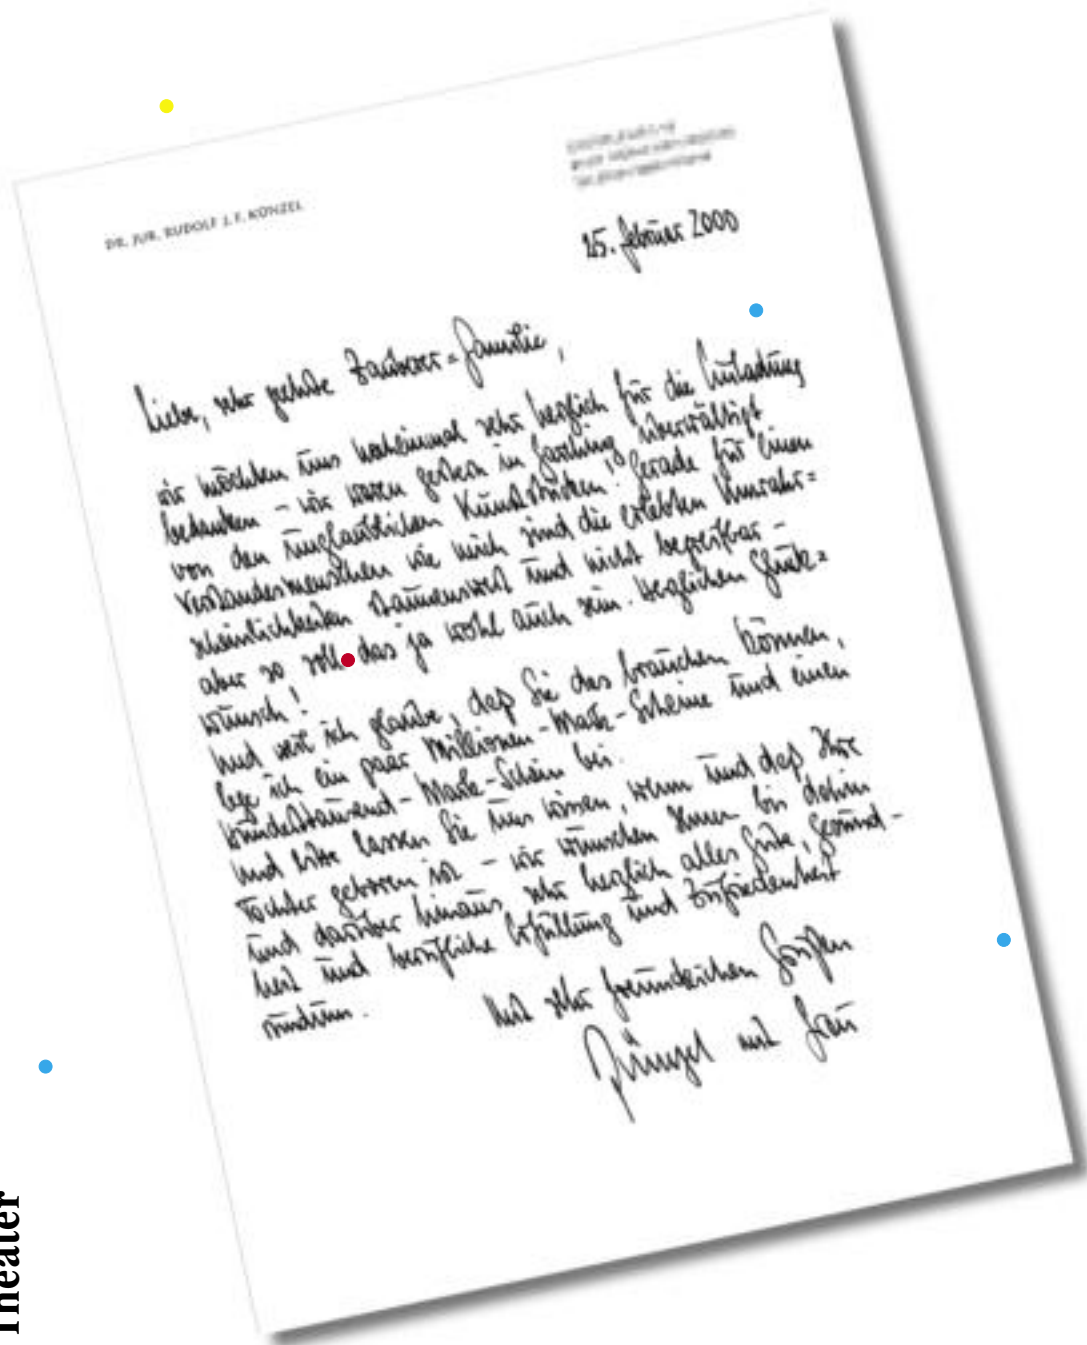 DR. JUR. RUDOLF J. F. KÜNZEL
25. Februar 2000
Liebe, sehr geehrte Zauberer=Familie,
wir möchten uns nocheinmal sehr herzlich für die Einladung
bedanken – wir waren gestern in Garching überwältigt
von den unglaublichen Kunststücken! Gerade für einen
Verstandesmenschen wie mich sind die erlebten Unwahr=
scheinlichkeiten staunenswert und nicht begreifbar –
aber so soll das ja wohl auch sein. Herzlichen Glück=
wunsch!
Und weil ich glaube, daß Sie das brauchen können,
lege ich ein paar Millionen-Mark-Scheine und einen
Hunderttausend-Mark-Schein bei.
Und bitte lassen Sie uns wissen, wenn und daß Ihre
Tochter geboren ist – wir wünschen Ihnen bis dahin
und darüber hinaus sehr herzlich alles Gute, Gesund-
heit und berufliche Erfüllung und Zufriedenheit
rundum.
Mit sehr freundlichen Grüßen
Künzel mit Frau
Theater